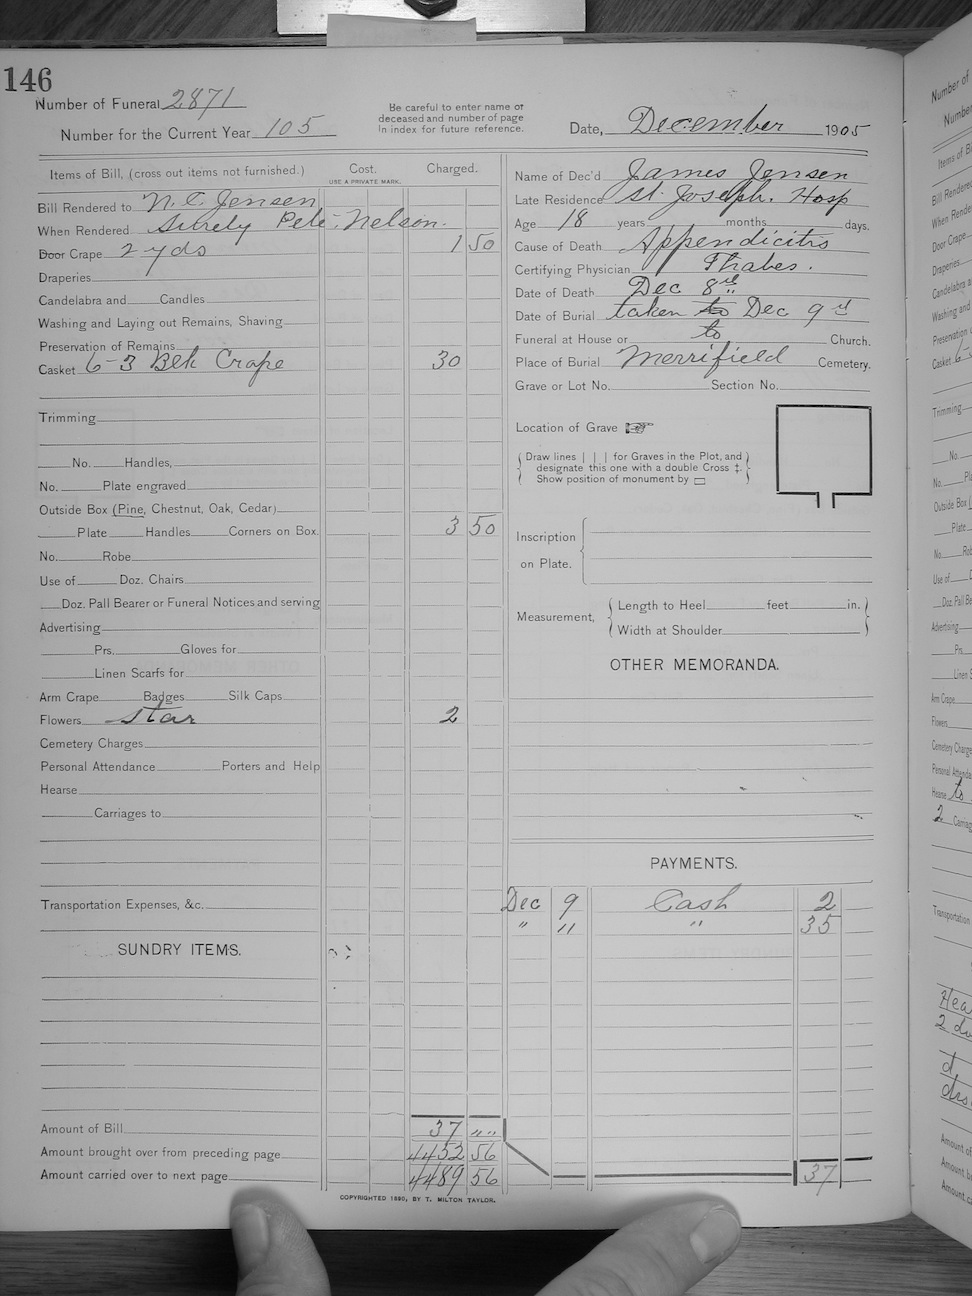 146
Number of Funeral 2871
Number for the Current Year 105
Be careful to enter name or
deceased and number of page
in index for future reference.
Date, December 1905
Items of Bill, (cross out items not furnished.)
Cost.
USE A PRIVATE MARK.
Charged.
Bill Rendered to N. C. Jensen
When Rendered Surely Pete Nelson.
Door Crape 2 yds 1 50
Draperies
Candelabra and Candles
Washing and Laying out Remains, Shaving
Preservation of Remains
Casket 6-3 Blk Crape 30
Trimming
No. Handles,
No. Plate engraved
Outside Box (Pine, Chestnut, Oak, Cedar)
Plate Handles Corners on Box. 3 50
No. Robe
Use of Doz. Chairs
Doz. Pall Bearer or Funeral Notices and serving
Advertising
Prs. Gloves for
Linen Scarfs for
Arm Crape Badges Silk Caps
Flowers Star 2
Cemetery Charges
Personal Attendance Porters and Help
Hearse
Carriages to
Transportation Expenses, &c.
SUNDRY ITEMS.
Amount of Bill 37 " "
Amount brought over from preceding page 4452 56
Amount carried over to next page 4489 56
COPYRIGHTED 1890, BY T. MILTON TAYLOR.
Name of Dec'd James Jensen
Late Residence St. Joseph. Hosp
Age 18 years months days.
Cause of Death Appendicitis
Certifying Physician Thabes.
Date of Death Dec 8th
Date of Burial taken to Dec 9th
Funeral at House or to Church.
Place of Burial Merrifield Cemetery.
Grave or Lot No. Section No.
Location of Grave
Draw lines | | | for Graves in the Plot, and
designate this one with a double Cross ‡.
Show position of monument by
Inscription
on Plate.
Measurement,
Length to Heel feet in.
Width at Shoulder
OTHER MEMORANDA.
PAYMENTS.
Dec 9 Cash 2
" " " 35
37
Number of
Number
Items of B
Bill Rendered
When Rende
Door Crape
Draperies
Candelabra a
Washing and
Preservation
Casket 6-
Trimming
No.
No. Pl
Outside Box (
Plate
No. Rob
Use of D
Doz. Pall Be
Advertising
Prs.
Linen S
Arm Crape
Flowers
Cemetery Charge
Personal Attenda
Hearse to
2 Carriag
Transportation
Hea
Amount of
Amount b
Amount ca